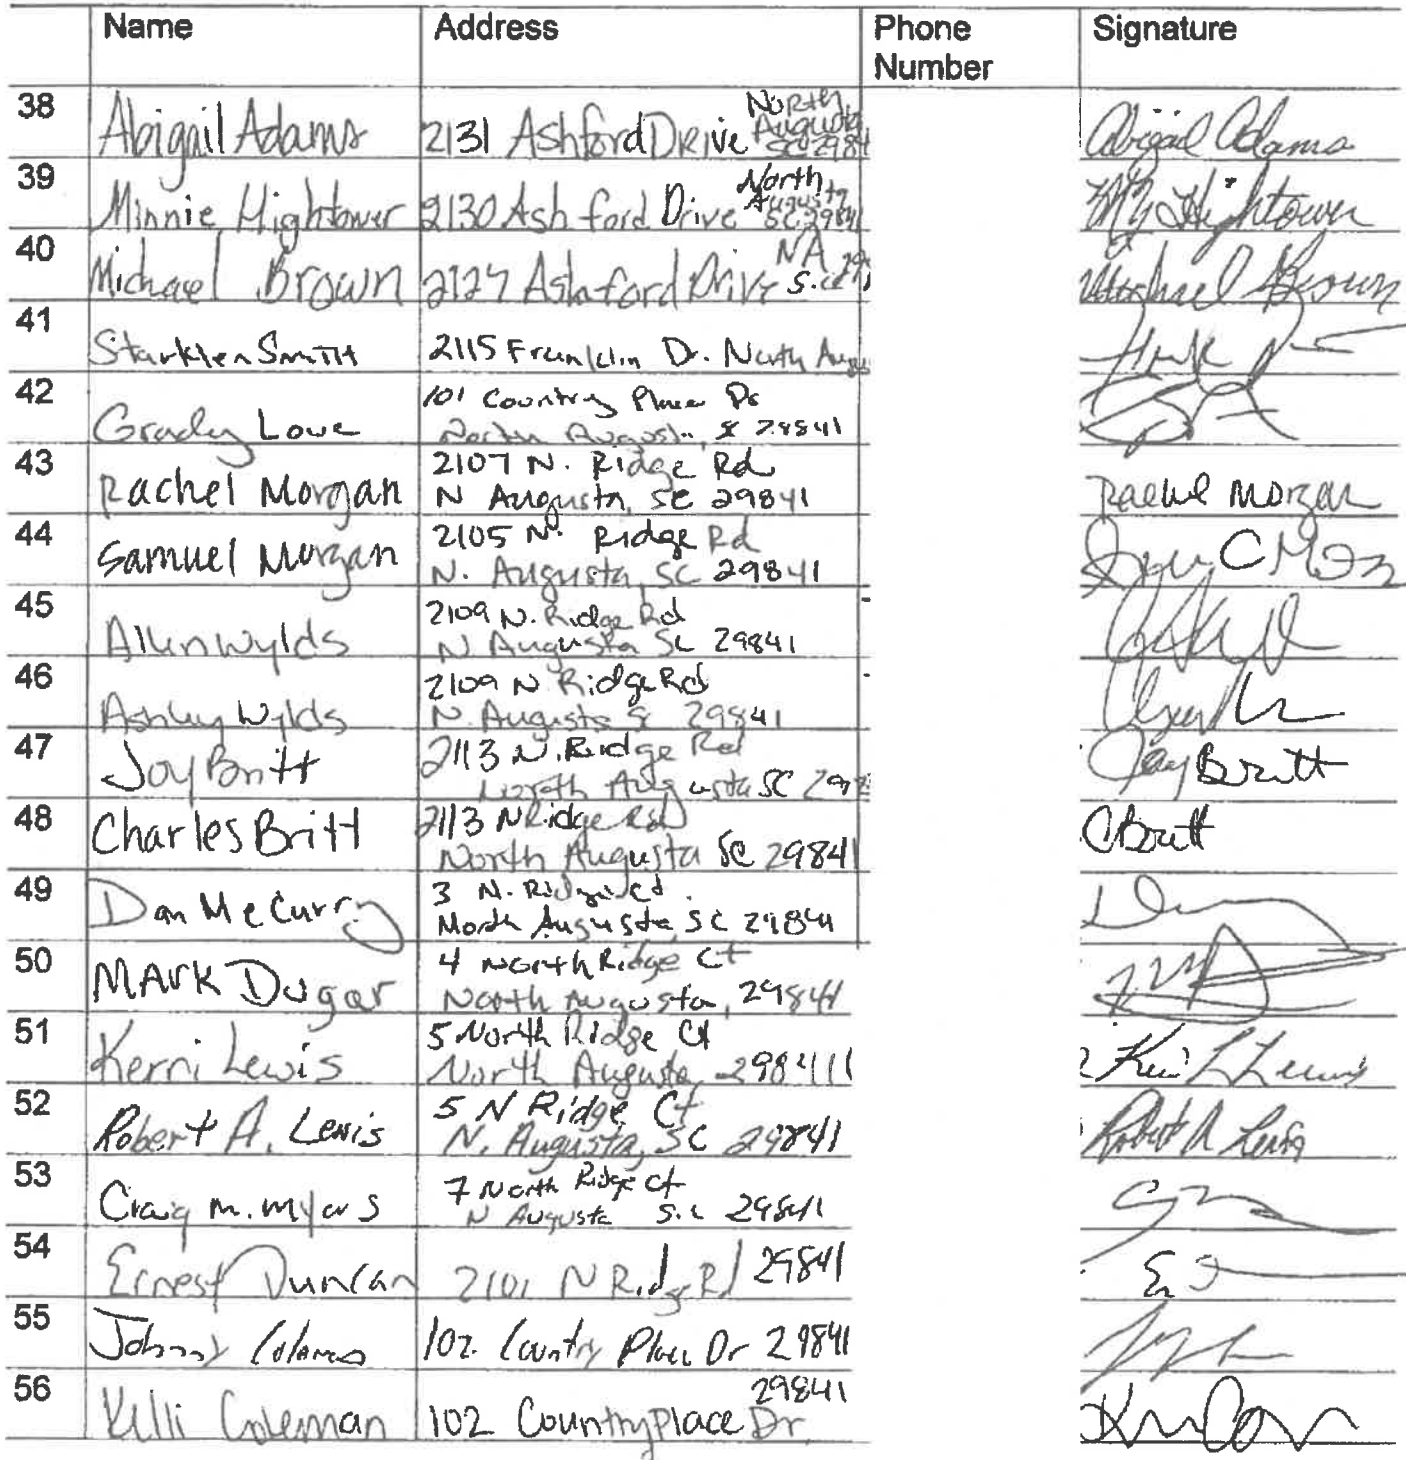 Name Address Phone Number Signature
38 Abigail Adams 2131 Ashford Drive North Augusta SC 29841 Abigail Adams
39 Minnie Hightower 2130 Ashford Drive North Augusta SC 29841 My Hightower
40 Michael Brown 2127 Ashford Drive NA S.C. Michael Brown
41 Starklen Smith 2115 Franklin Dr. North
42 Grady Lowe 101 Country Place Dr
North Augusta, SC 29841
43 Rachel Morgan 2107 N. Ridge Rd
N Augusta, SC 29841 Rachel Morgan
44 Samuel Morgan 2105 N. Ridge Rd
N. Augusta, SC 29841
45 Allen Wylds 2109 N. Ridge Rd
N Augusta SC 29841
46 Ashley Wylds 2109 N Ridge Rd
N. Augusta SC 29841
47 Joy Britt 2113 N. Ridge Rd
North Augusta SC Joy Britt
48 Charles Britt 2113 N Ridge Rd
North Augusta SC 29841 C Britt
49 Dan McCurry 3 N. Ridge Ct.
North Augusta SC 29841
50 MArk Dugar 4 North Ridge Ct
North Augusta, 29841
51 Kerri Lewis 5 North Ridge Ct
North Augusta, 29841 Kerri L Lewis
52 Robert A. Lewis 5 N Ridge Ct
N. Augusta, SC 29841 Robert A Lewis
53 Craig M. Myers 7 North Ridge Ct
N Augusta S.C 29841
54 Ernest Duncan 2101 N Ridge Rd 29841
55 Johnny 102 Country Place Dr 29841
56 Kelli Coleman 102 Country Place Dr 29841